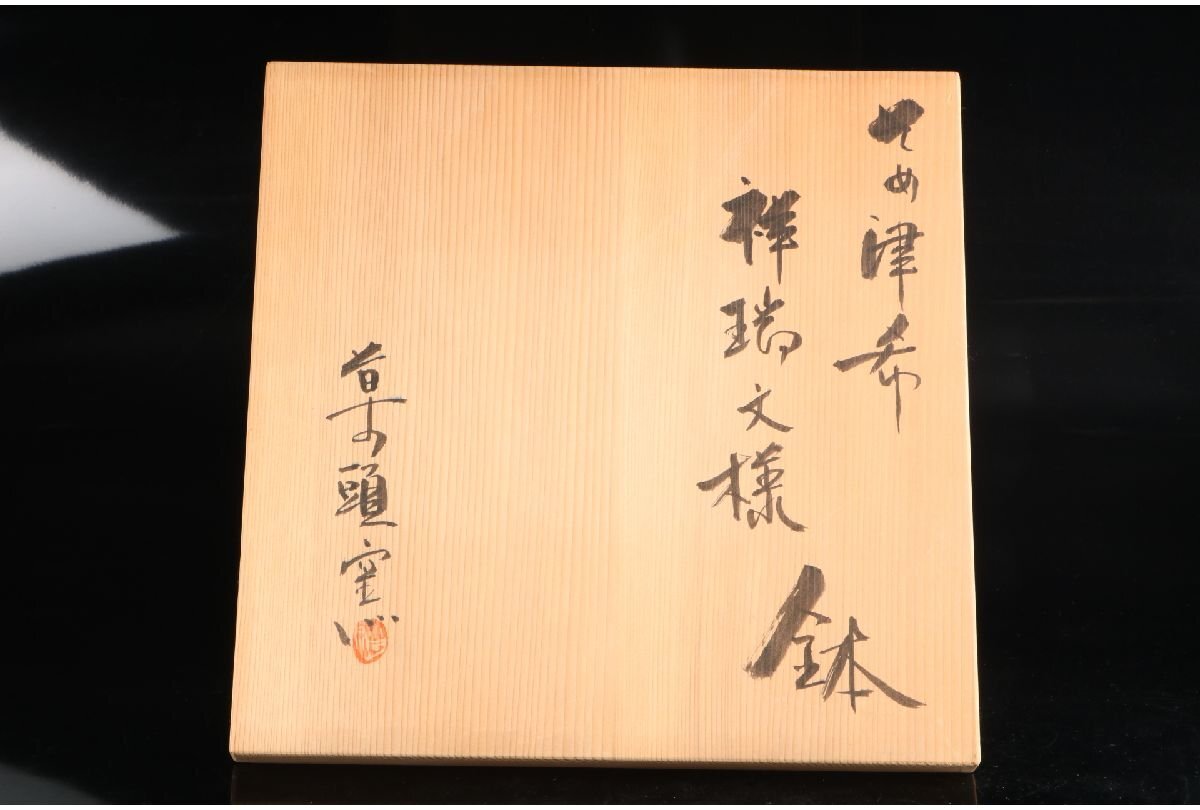 そめ津希
祥瑞文様
鉢
草の頭窯